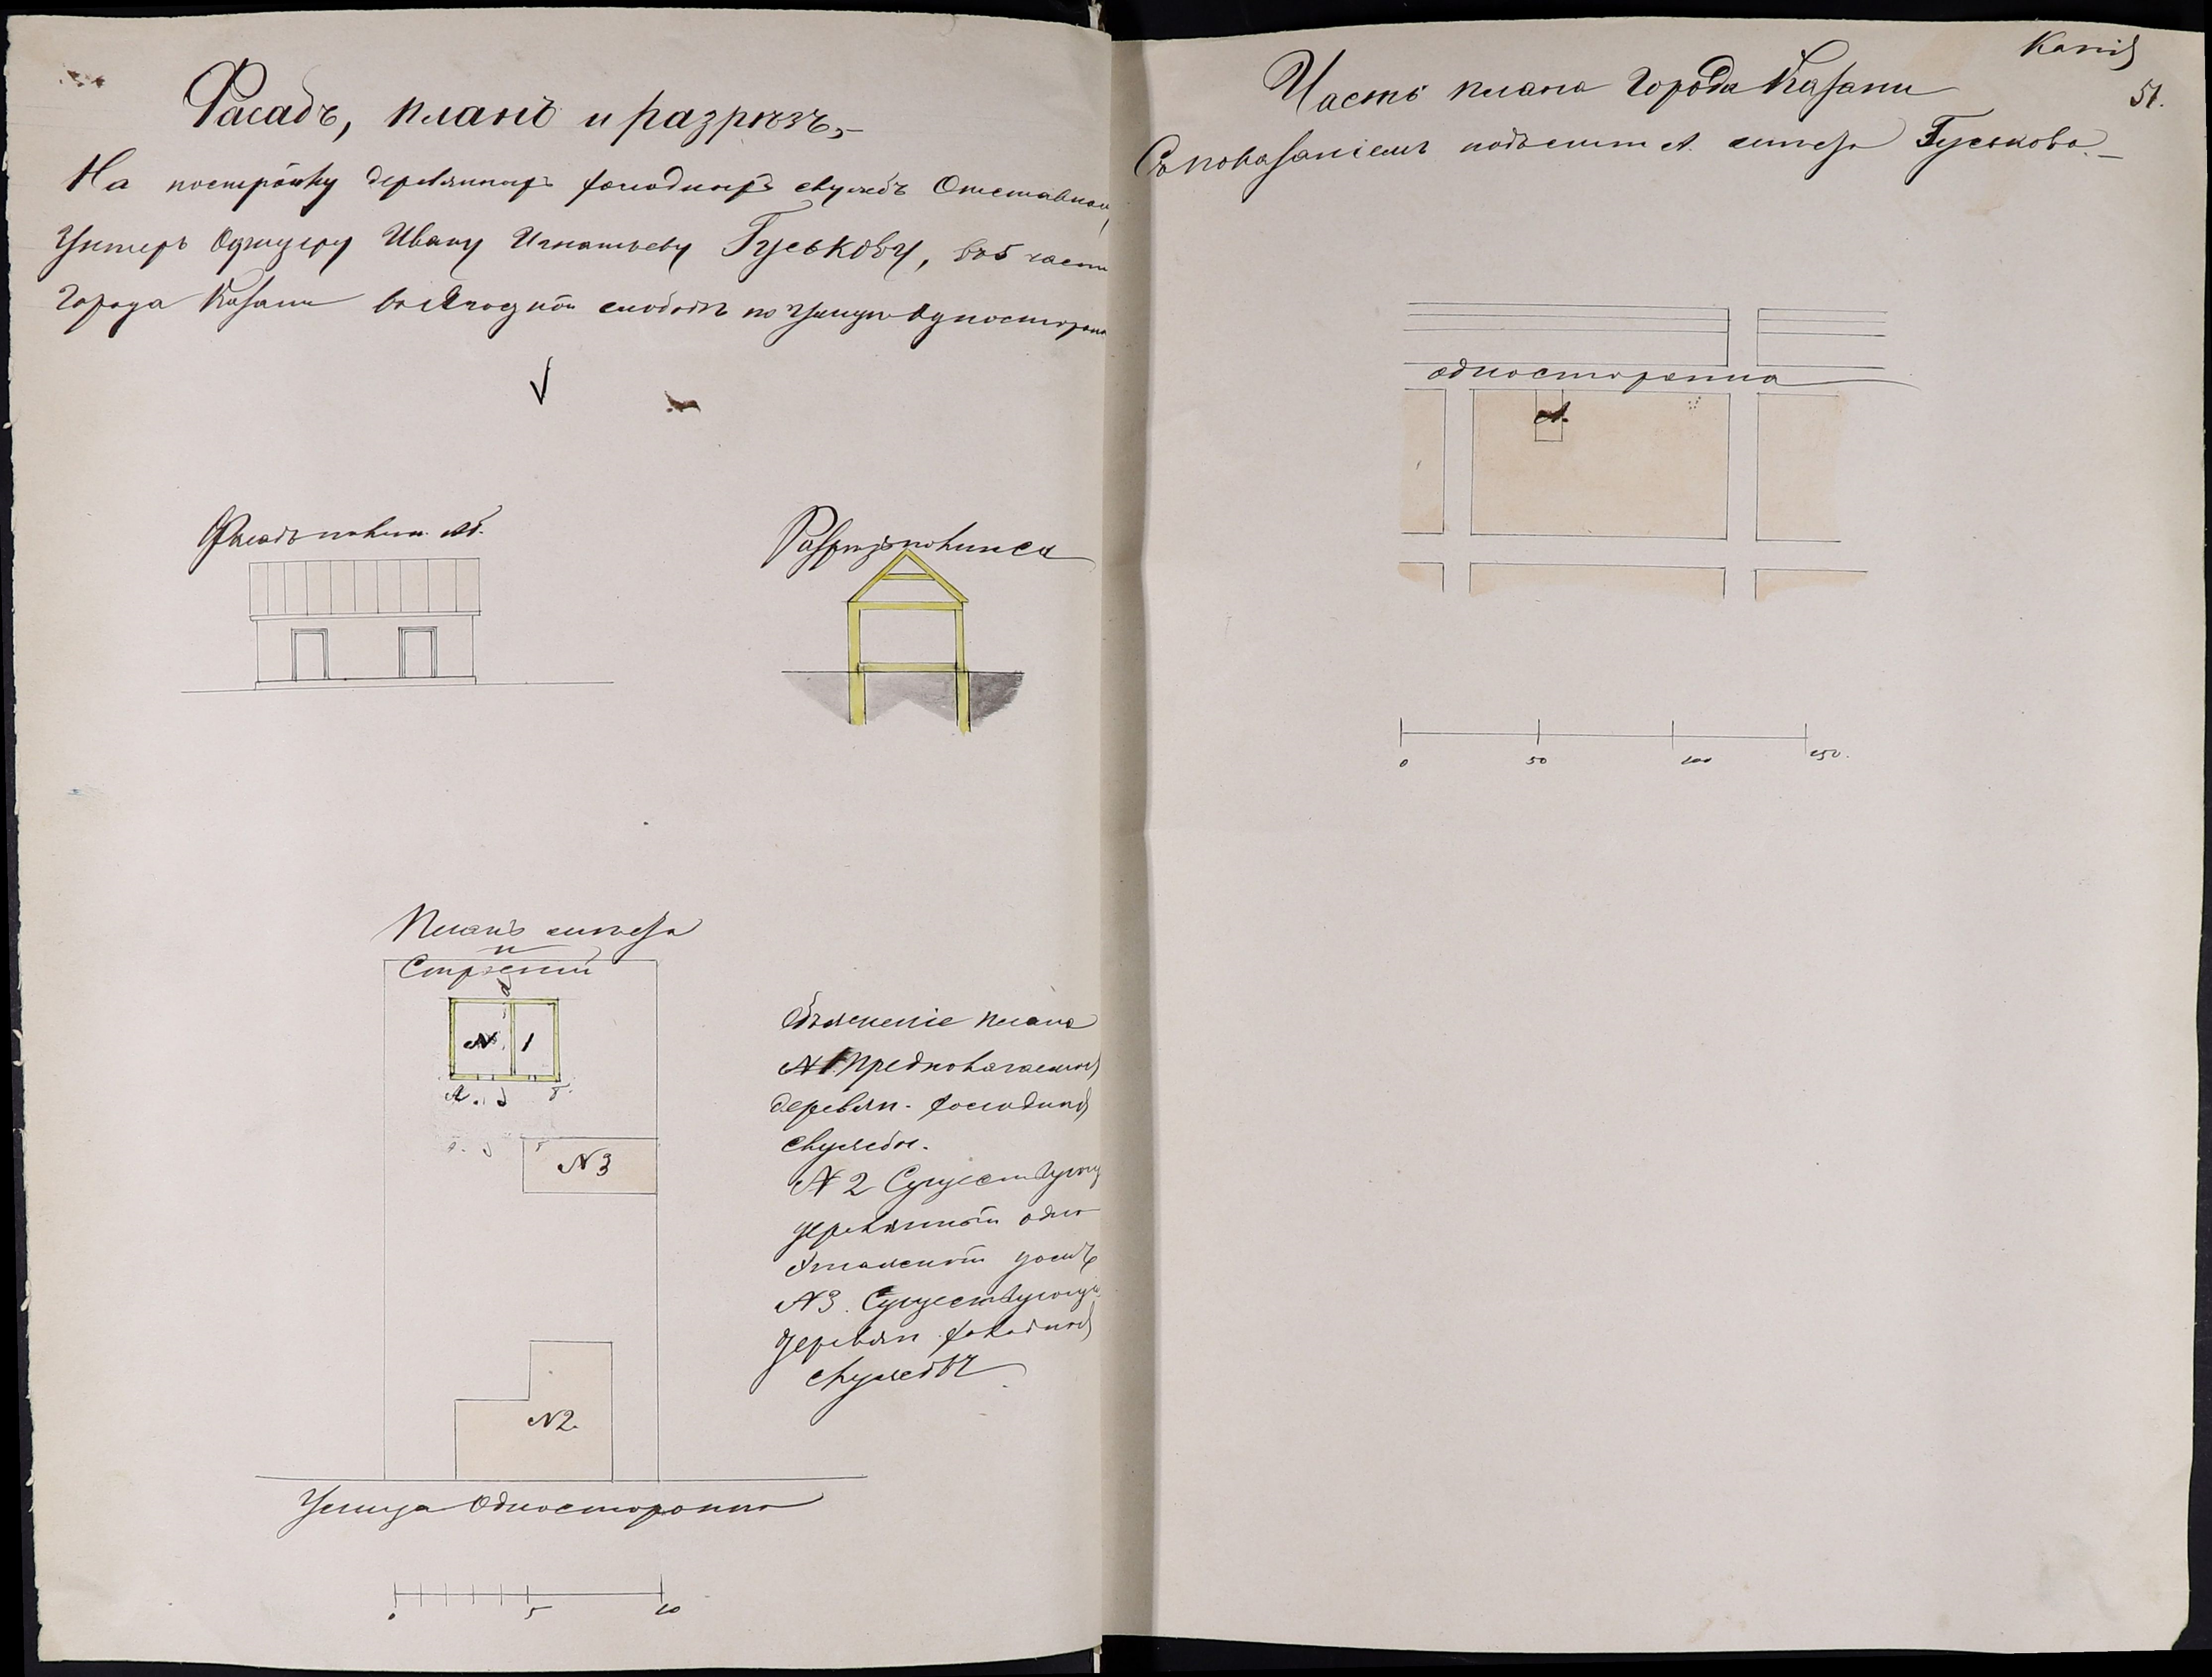 Фасадъ, планъ и разрѣзъ,
На постройку деревянныхъ холодныхъ службъ Отставному
Унтеръ Офицеру Ивану Игнатьеву Гуськову, въ 5 части
Города Казани въ Ягодной слободѣ по Улицѣ Односторон
Фасадъ по лин. АБ.
Разрѣзъ по лин с d
Планъ мѣста
и
Строеній
d
№ 1
А. d Б.
№ 3
№ 2.
Улица Односторонна
0 5 10
Объясненіе плана
№ 1 Предполагаемыя
деревян. холодныя
службы.
№ 2 Существующ
деревянный одно
этажный домъ
№ 3. Существующи
деревян холодныя
службы
Копія
51.
Часть плана Города Казани
Съ показаніемъ подъ лит А. мѣста Гуськова.
односторонна
А.
0 50 100 150.